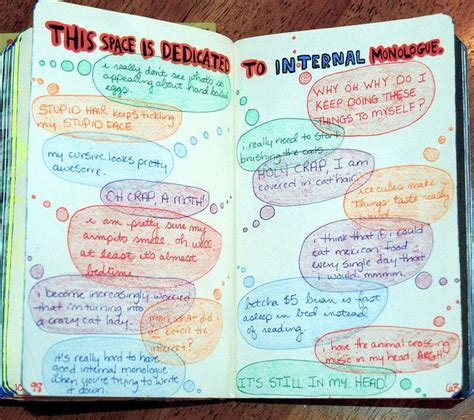 THIS SPACE IS DEDICATED
i really don't see what's so
appealing about hard boiled
eggs.
STUPID HAIR keeps tickling
my STUPID FACE
my cursive looks pretty
awesome.
OH CRAP, A MOTH!
i am pretty sure my
armpits smell. oh well,
at least it's almost
bedtime.
i become increasingly worried
that i'm turning into
a crazy cat lady.
man, what did i
do before the
internet?
it's really hard to have
good internal monologue
when you're trying to write
it down.
TO INTERNAL MONOLOGUE.
WHY OH WHY DO I
KEEP DOING THESE
THINGS TO MYSELF?
i really need to start
brushing the cats.
HOLY CRAP, I am
covered in cat hair.
ice cubes make
things taste really
i think that if i could
eat mexican food
every single day that
i would. mmmm.
betcha $5 brian is fast
asleep in bed instead
of reading.
i have the animal crossing
music in my head. ARGH!
IT'S STILL IN MY HEAD.